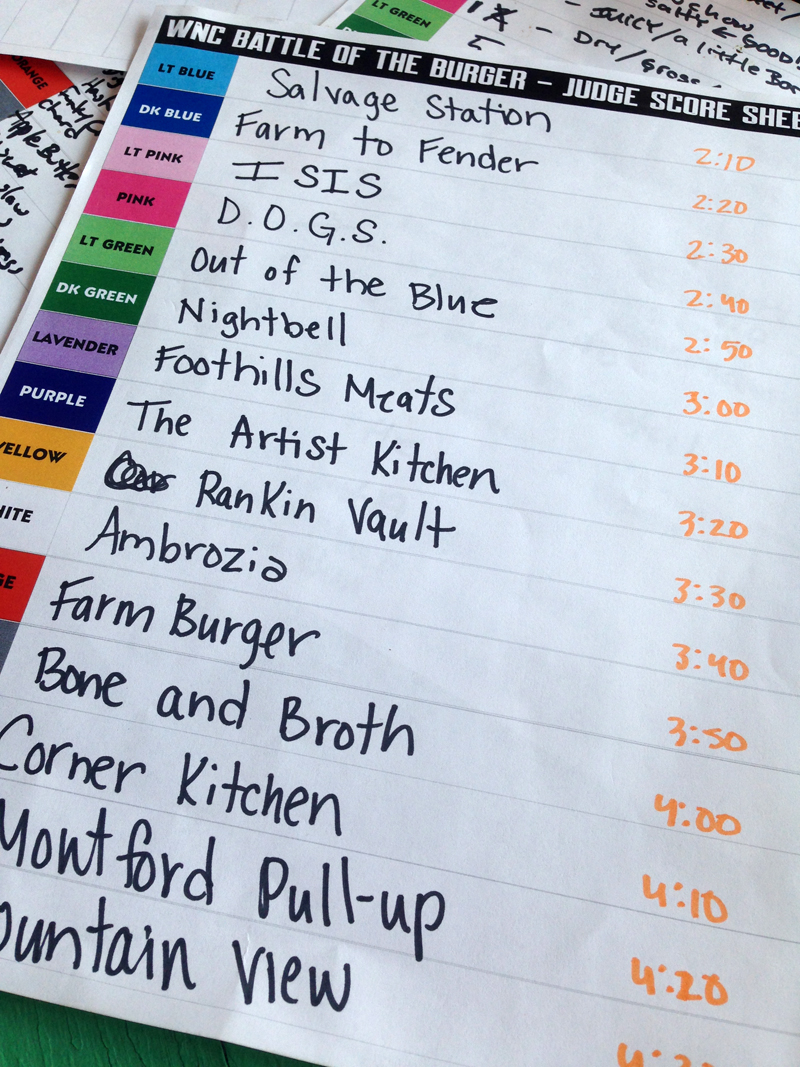 LT GREEN
- JUICY/a little
- DRY/Gross.
ORANGE
Apple Butter
slaw
WNC BATTLE OF THE BURGER – JUDGE SCORE SHEE
LT BLUE Salvage Station 2:10
DK BLUE Farm to Fender 2:20
LT PINK ISIS 2:30
PINK D.O.G.S. 2:40
LT GREEN Out of the Blue 2:50
DK GREEN Nightbell 3:00
LAVENDER Foothills Meats 3:10
PURPLE The Artist Kitchen 3:20
YELLOW Rankin Vault 3:30
HITE Ambrozia 3:40
GE Farm Burger 3:50
Bone and Broth 4:00
Corner Kitchen 4:10
Montford Pull-up 4:20
ountain View